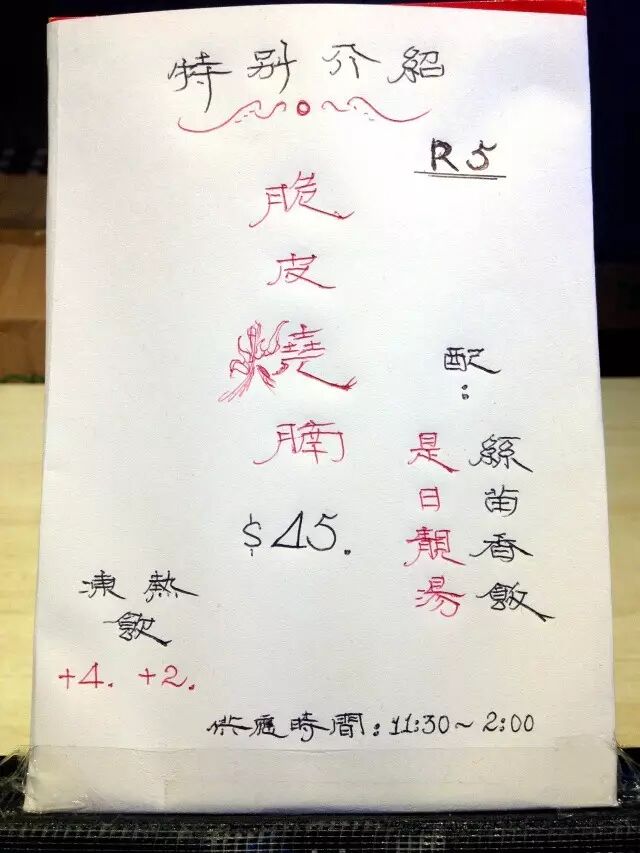 特别介紹
R5
脆皮燒腩
$45.
配:
絲苗香飯
是日靚湯
凍熱
飲
+4. +2.
供應時間:11:30~2:00